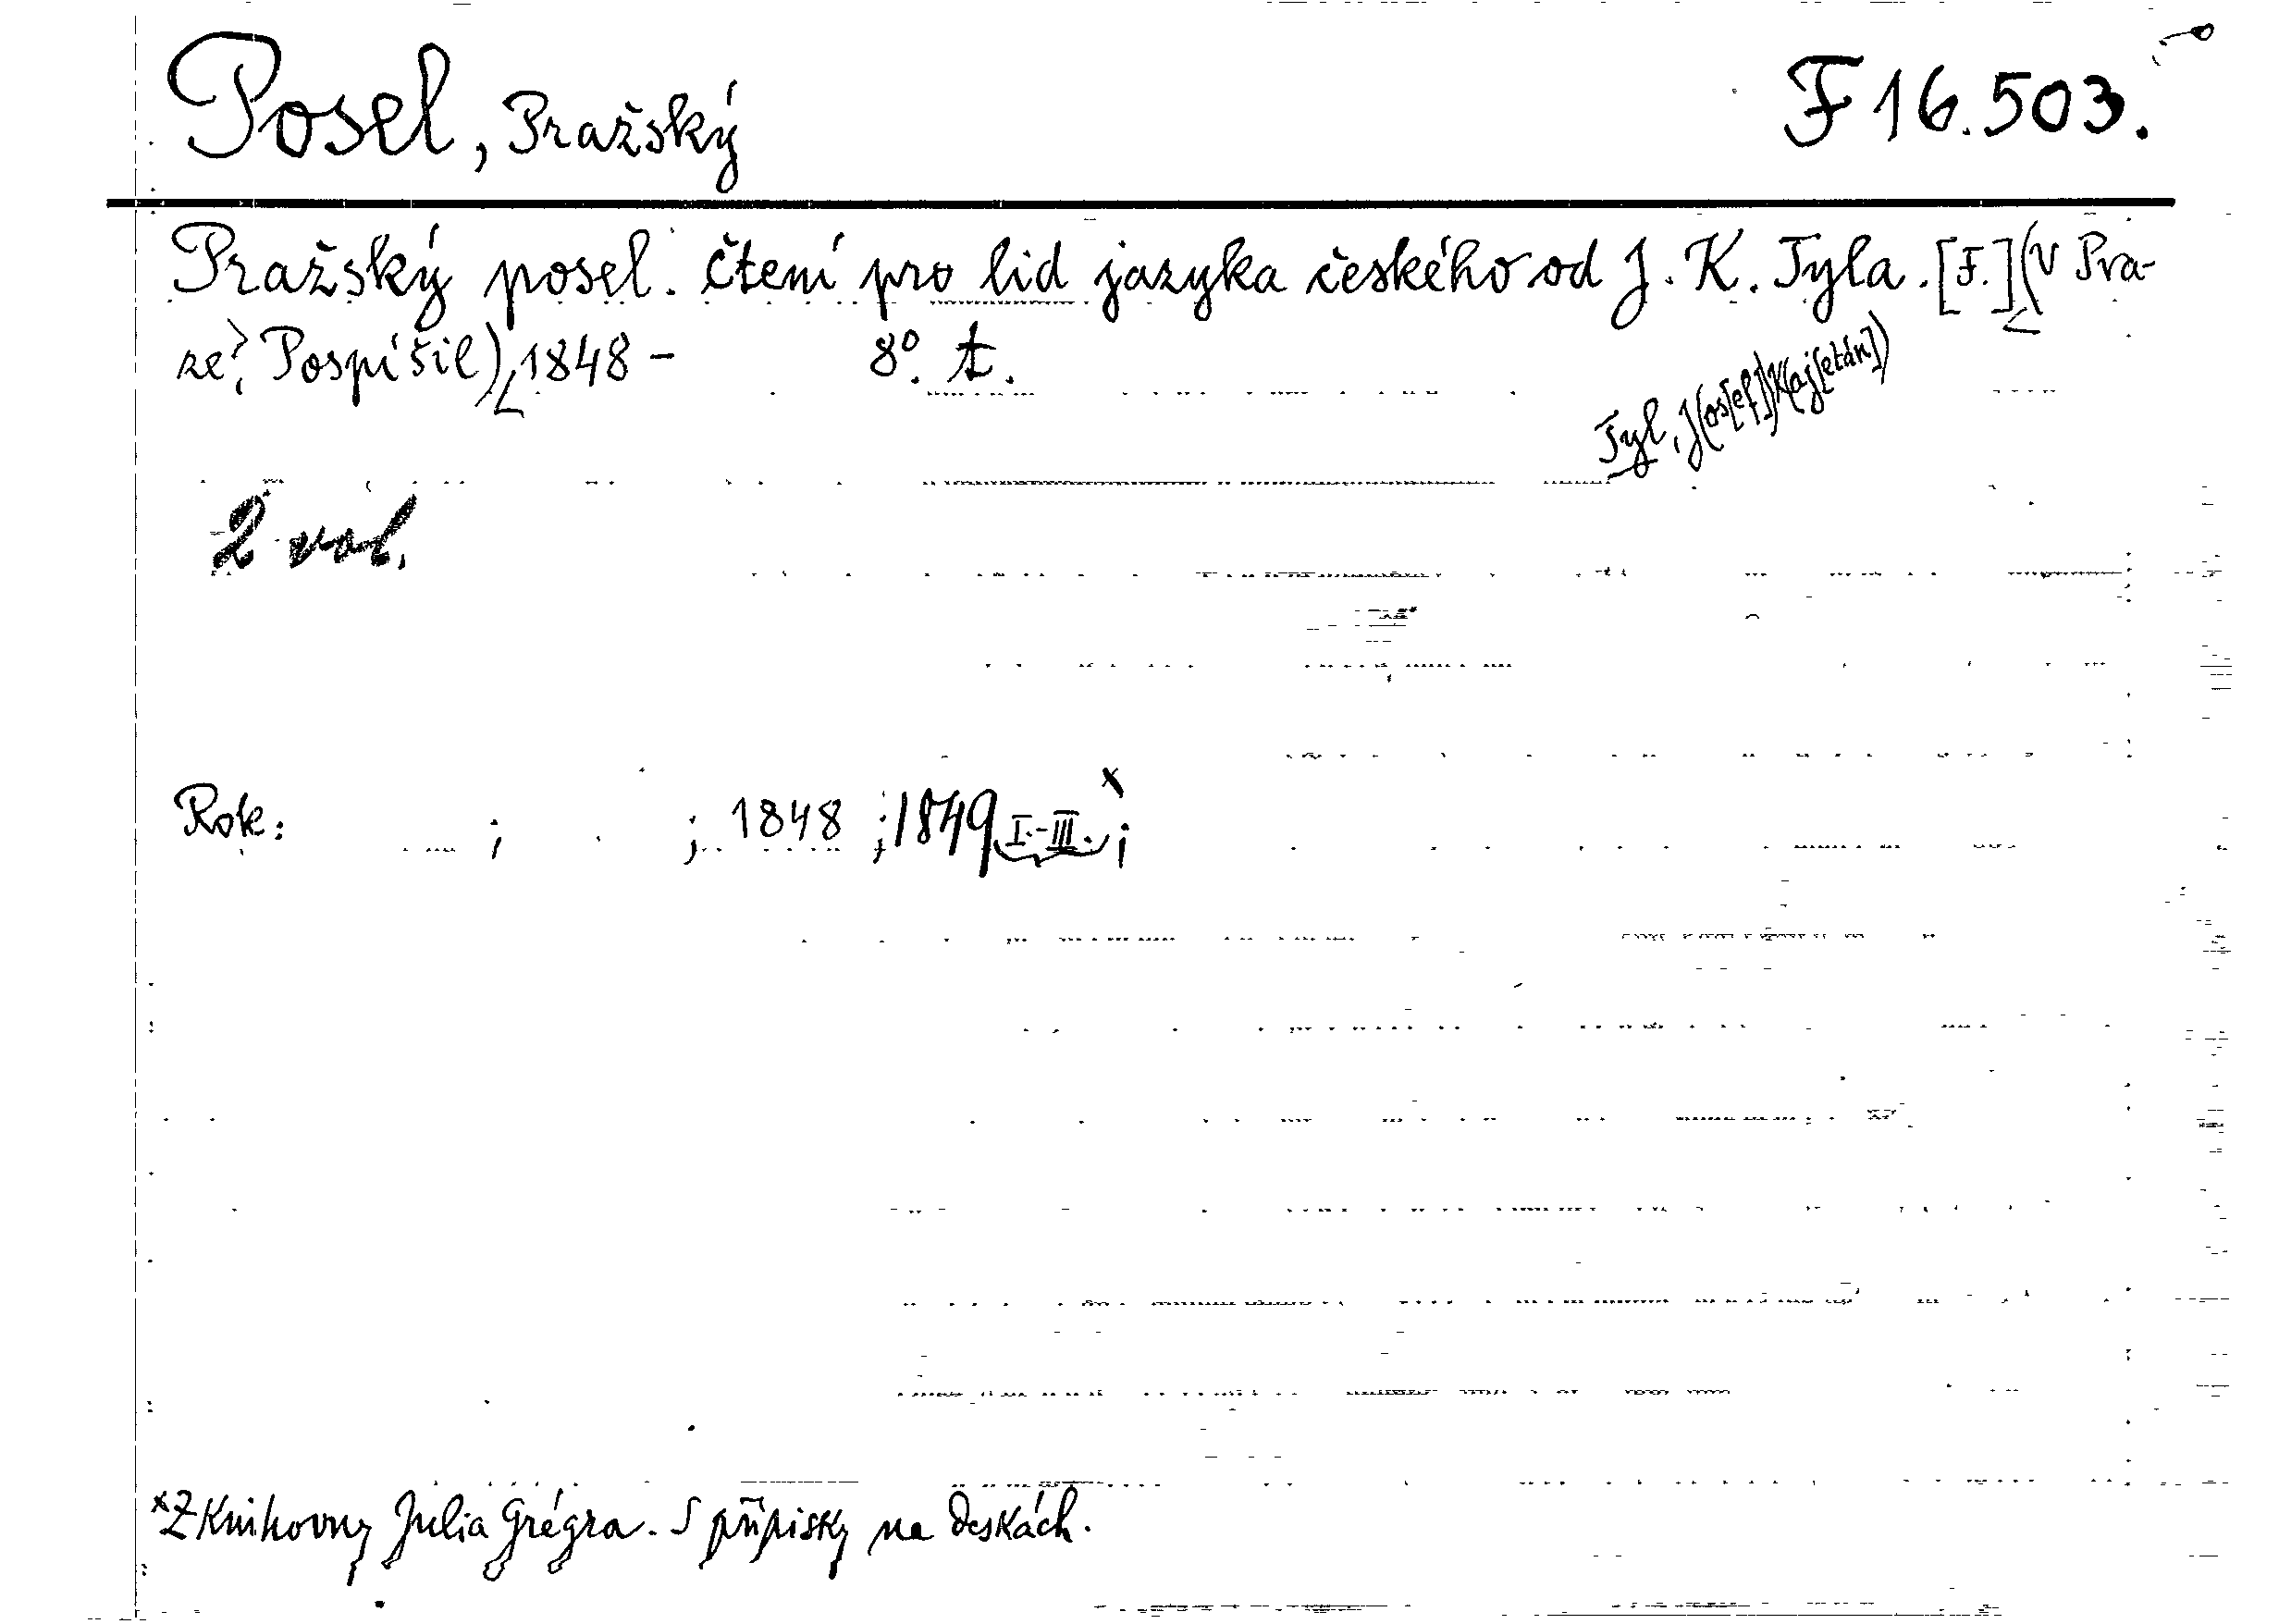 Posel, Pražský F 16.503.
Pražský posel. Čtení pro lid jazyka českého od J. K. Tyla. [F.] (V Pra-
ze, Pospíšil), 1848 - 8°. t.
Tyl, J(os[ef]) K(aj[etán])
2 vol.
Rok: ; ; 1848 ; 1849 I.-III. x ;
x Z Knihovny Julia Grégra. S přípisky na deskách.